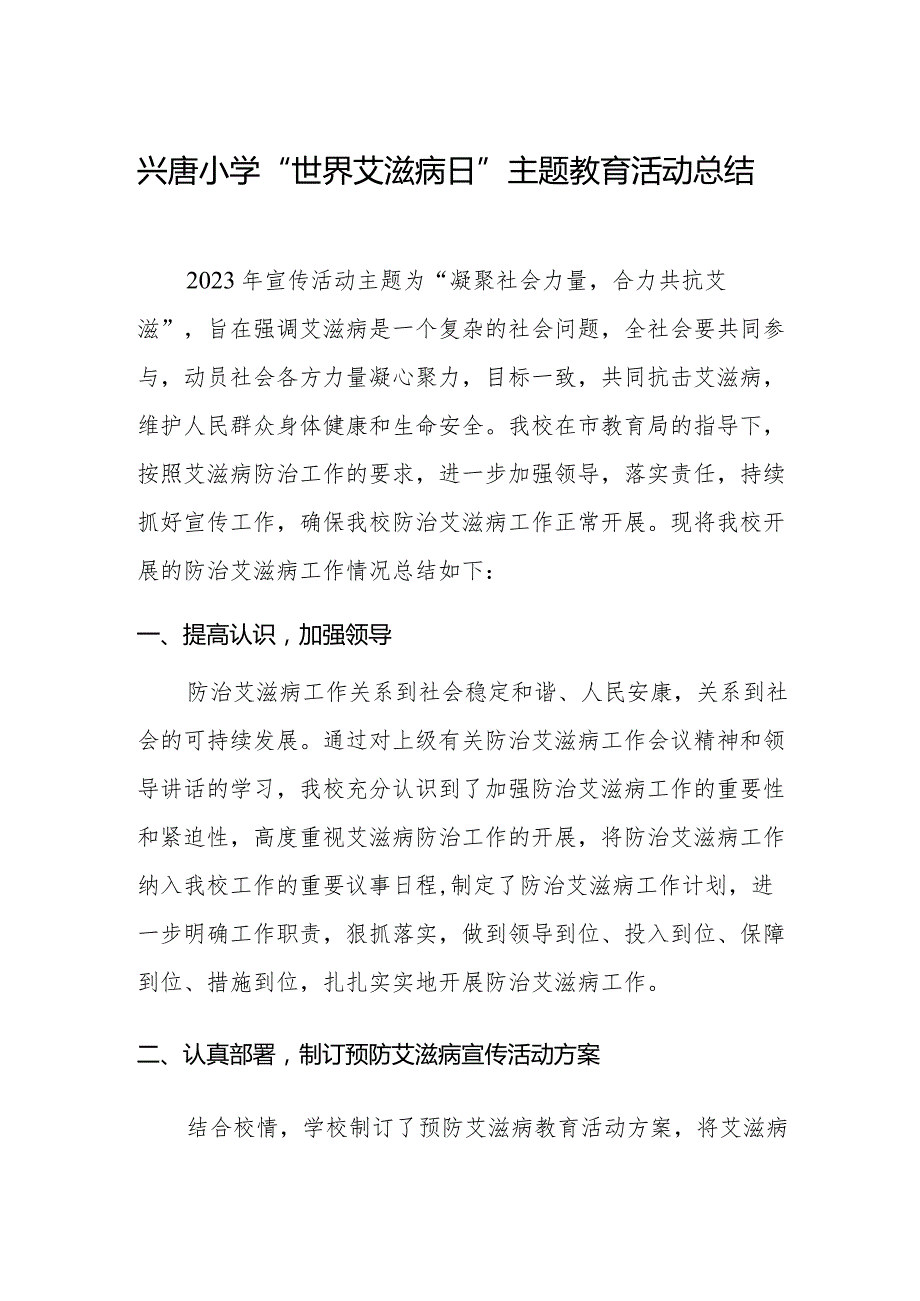 兴唐小学“世界艾滋病日”主题教育活动总结
2023年宣传活动主题为“凝聚社会力量，合力共抗艾
滋”，旨在强调艾滋病是一个复杂的社会问题，全社会要共同参
与，动员社会各方力量凝心聚力，目标一致，共同抗击艾滋病，
维护人民群众身体健康和生命安全。我校在市教育局的指导下，
按照艾滋病防治工作的要求，进一步加强领导，落实责任，持续
抓好宣传工作，确保我校防治艾滋病工作正常开展。现将我校开
展的防治艾滋病工作情况总结如下：
一、提高认识，加强领导
防治艾滋病工作关系到社会稳定和谐、人民安康，关系到社
会的可持续发展。通过对上级有关防治艾滋病工作会议精神和领
导讲话的学习，我校充分认识到了加强防治艾滋病工作的重要性
和紧迫性，高度重视艾滋病防治工作的开展，将防治艾滋病工作
纳入我校工作的重要议事日程,制定了防治艾滋病工作计划，进
一步明确工作职责，狠抓落实，做到领导到位、投入到位、保障
到位、措施到位，扎扎实实地开展防治艾滋病工作。
二、认真部署，制订预防艾滋病宣传活动方案
结合校情，学校制订了预防艾滋病教育活动方案，将艾滋病